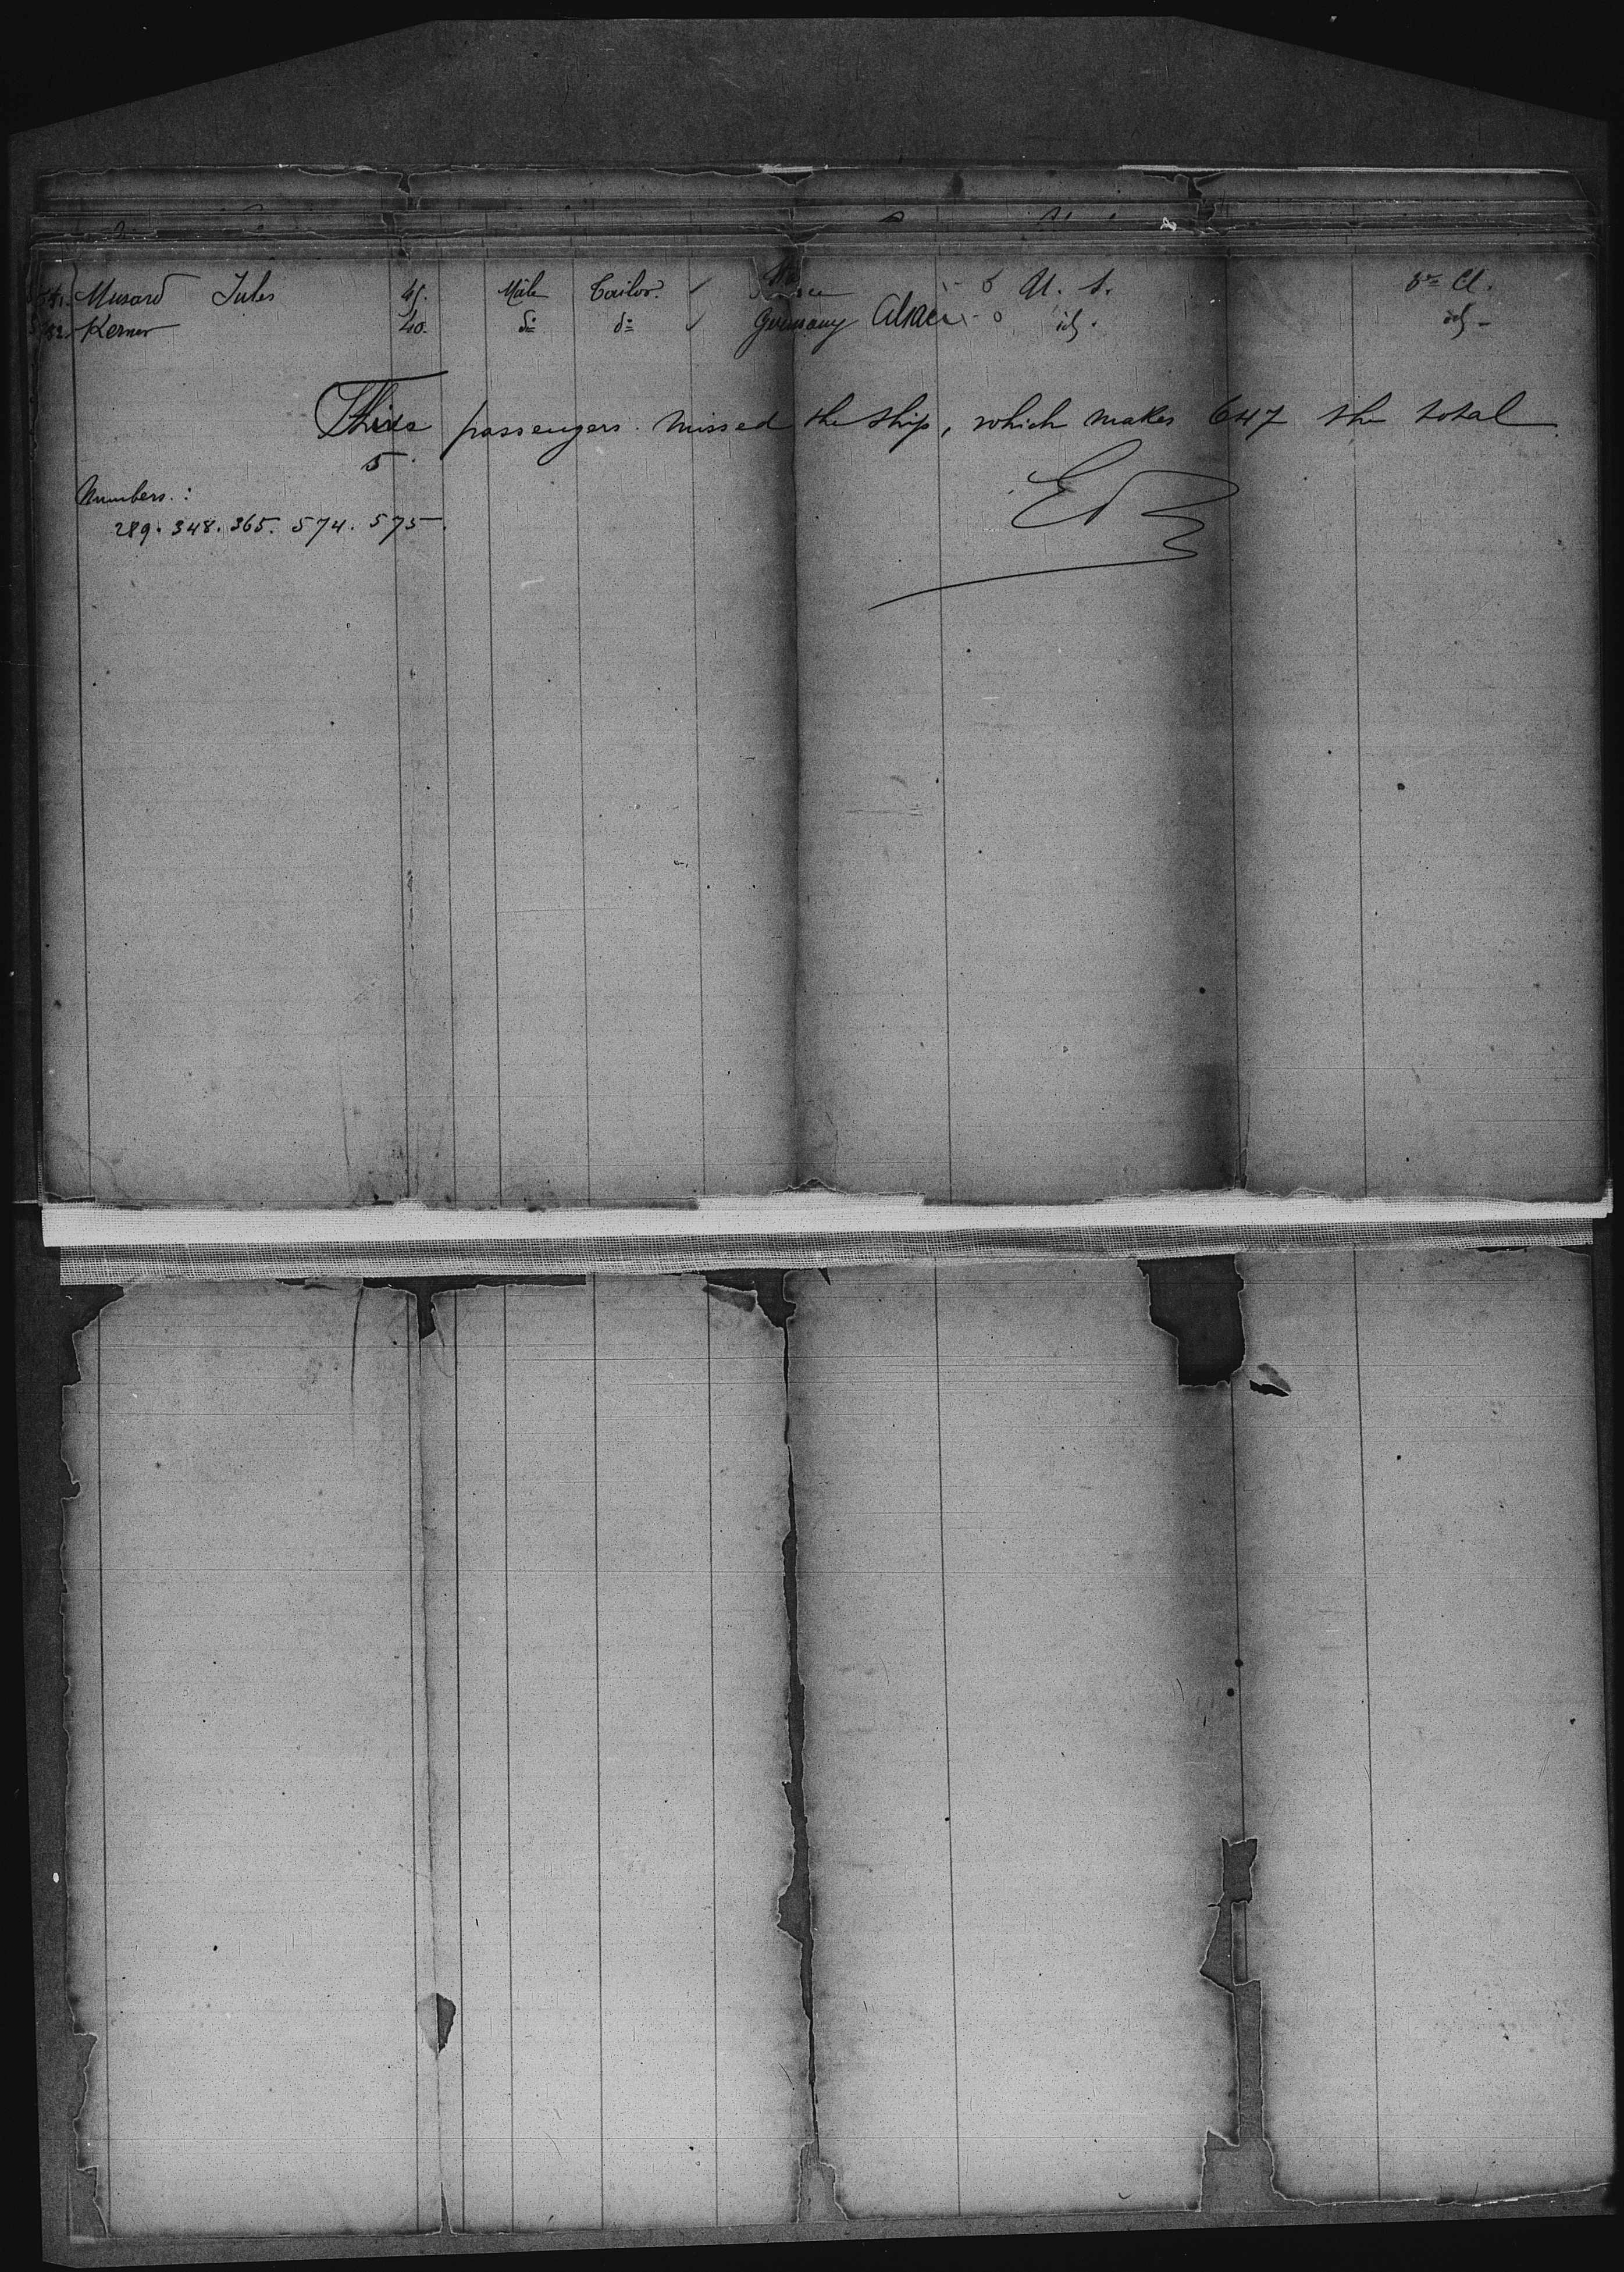 Musard Jules 45. Male Tailor. U. S. 3re Cl.
652. Kerner 40. do do Germany Alsace id. id -
These passengers missed the ship, which makes 647 the total
5.
Numbers. :
289. 348. 365. 574. 575.